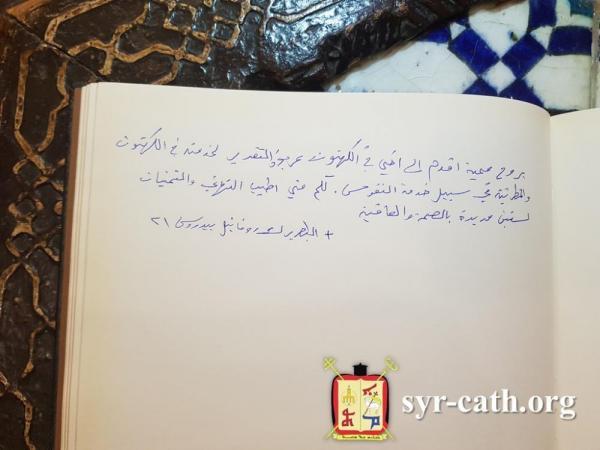 بروح صميمية اقدم الى اخي في الكهنوت عربون التقدير لخدمته في الكهنوت
والمطرنة في سبيل خدمة النفوس. لكم مني اطيب التهاني والتمنيات
لسنين عديدة بالصحة والعافية
+ البطريرك روفائيل بيدروس ٢١
syr-cath.org